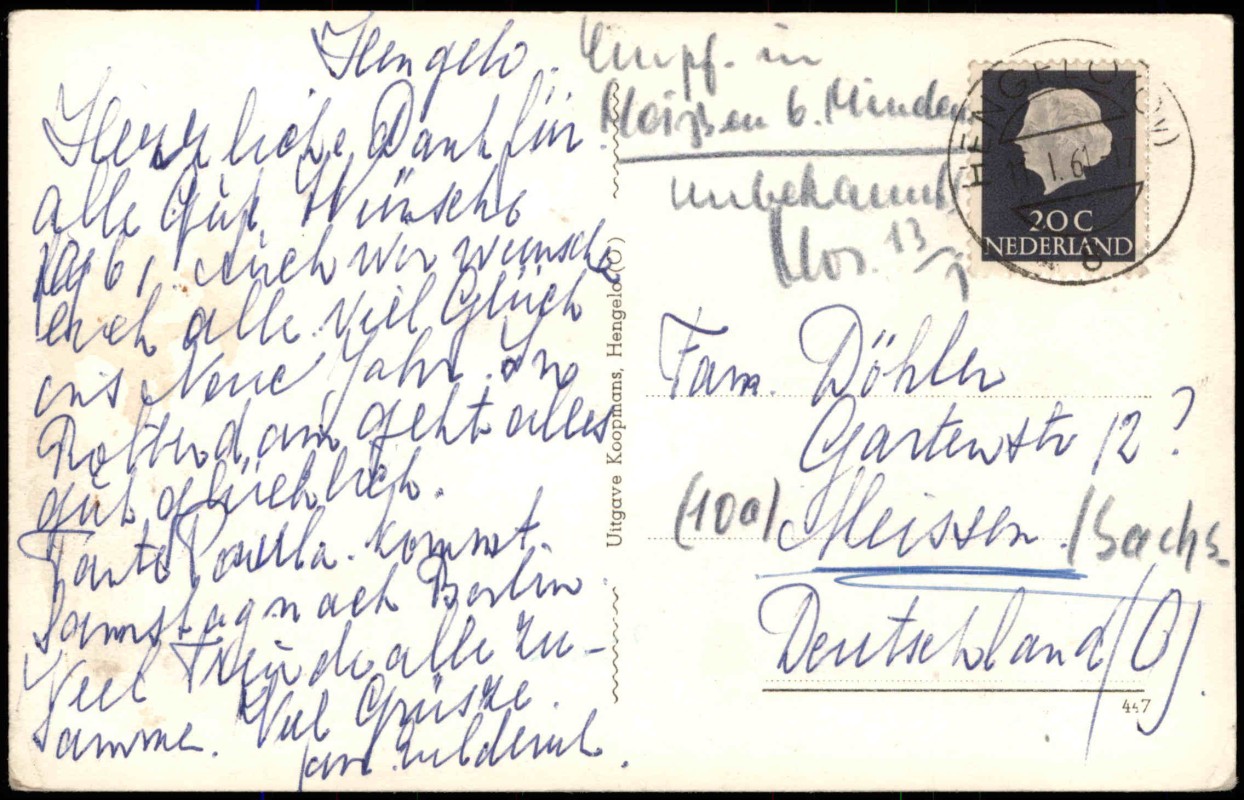 Hengelo.
Herzliche Dank für
alle gute Wünsche
1961, auch wir wünsche
euch alle viel Glück
ins Neue Jahr. In
Rotterdam geht alles
gut glücklich.
Tante Paula kommt
Samstag nach Berlin
Veel Freude alle zu-
samme. Viel Grüsze
fam.
Empf. in
b. Minden
unbekannt
13/1
HENGELO (OV)
1.61
8
20 C
NEDERLAND
Uitgave Koopmans, Hengelo (O)
Fam. Döhler
Gartenstr 12?
(10a) Meissen /Sachs.
Deutschland (O).
447